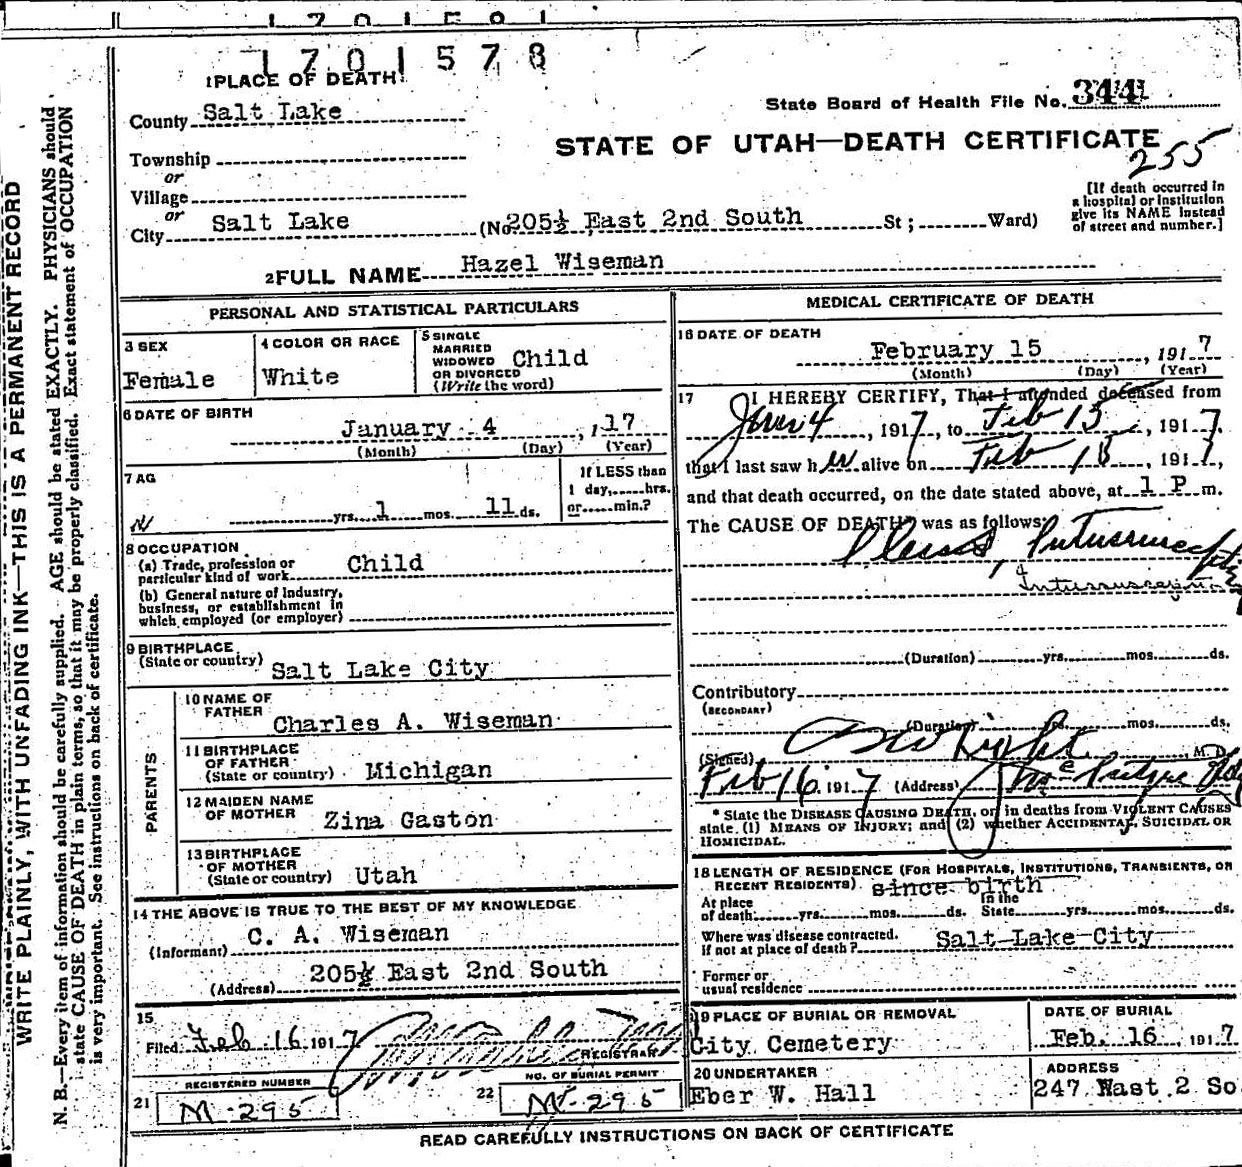 1701578
1 PLACE OF DEATH
State Board of Health File No. 344
County Salt Lake
STATE OF UTAH—DEATH CERTIFICATE
255
Township
or
Village
or
City Salt Lake (No. 205½ East 2nd South St; Ward)
[If death occurred in
a hospital or institution
give its NAME instead
of street and number.]
2 FULL NAME Hazel Wiseman
PERSONAL AND STATISTICAL PARTICULARS
3 SEX
Female
4 COLOR OR RACE
White
5 SINGLE
MARRIED
WIDOWED
OR DIVORCED
(Write the word)
Child
6 DATE OF BIRTH
January 4, 117
(Month) (Day) (Year)
7 AG
yrs. 1 mos. 11 ds.
If LESS than
1 day, hrs.
or min.?
8 OCCUPATION
(a) Trade, profession or
particular kind of work Child
(b) General nature of industry,
business, or establishment in
which employed (or employer)
9 BIRTHPLACE
(State or country) Salt Lake City
PARENTS
10 NAME OF
FATHER Charles A. Wiseman
11 BIRTHPLACE
OF FATHER
(State or country) Michigan
12 MAIDEN NAME
OF MOTHER Zina Gaston
13 BIRTHPLACE
OF MOTHER
(State or country) Utah
14 THE ABOVE IS TRUE TO THE BEST OF MY KNOWLEDGE
(Informant) C. A. Wiseman
(Address) 205½ East 2nd South
15
Filed Feb 16 1917
REGISTRAR
REGISTERED NUMBER
21 M-295
NO. OF BURIAL PERMIT
22 M-295
MEDICAL CERTIFICATE OF DEATH
16 DATE OF DEATH
February 15, 1917
(Month) (Day) (Year)
17 I HEREBY CERTIFY, That I attended deceased from
Jan 4, 1917, to Feb 15, 1917,
that I last saw her alive on Feb 15, 1917,
and that death occurred, on the date stated above, at 1 P m.
The CAUSE OF DEATH was as follows:
Intussusception
Intussusception
(Duration) yrs. mos. ds.
Contributory
(SECONDARY)
(Duration) yrs. mos. ds.
(Signed) M. D.
Feb 16, 1917 (Address)
* State the DISEASE CAUSING DEATH, or in deaths from VIOLENT CAUSES
state (1) MEANS OF INJURY; and (2) whether ACCIDENTAL, SUICIDAL OR
HOMICIDAL.
18 LENGTH OF RESIDENCE (FOR HOSPITALS, INSTITUTIONS, TRANSIENTS, OR
RECENT RESIDENTS) since birth
At place In the
of death yrs. mos. ds. State yrs. mos. ds.
Where was disease contracted,
if not at place of death? Salt Lake City
Former or
usual residence
19 PLACE OF BURIAL OR REMOVAL
City Cemetery
DATE OF BURIAL
Feb. 16, 1917
20 UNDERTAKER
Eber W. Hall
ADDRESS
247 East 2 So
READ CAREFULLY INSTRUCTIONS ON BACK OF CERTIFICATE
WRITE PLAINLY, WITH UNFADING INK—THIS IS A PERMANENT RECORD
N. B.—Every item of information should be carefully supplied. AGE should be stated EXACTLY. PHYSICIANS should
state CAUSE OF DEATH in plain terms, so that it may be properly classified. Exact statement of OCCUPATION
is very important. See instructions on back of certificate.